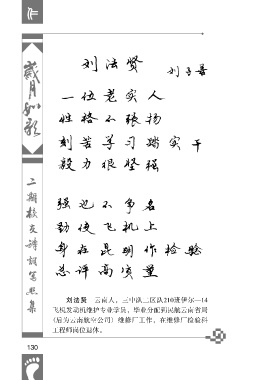 作
岁月如歌
二期校友诗词书画集
刘法贤
一位老实人
性格不张扬
刻苦学习踏实干
毅力很坚强
强也不争名
劲使飞机上
身在昆明作检验
总评高质量
刘法贤 云南人，三中队二区队210班伊尔—14
飞机发动机维护专业学员，毕业分配到民航云南省局
（后为云南航空公司）维修厂工作，在维修厂检验科
工程师岗位退休。
130